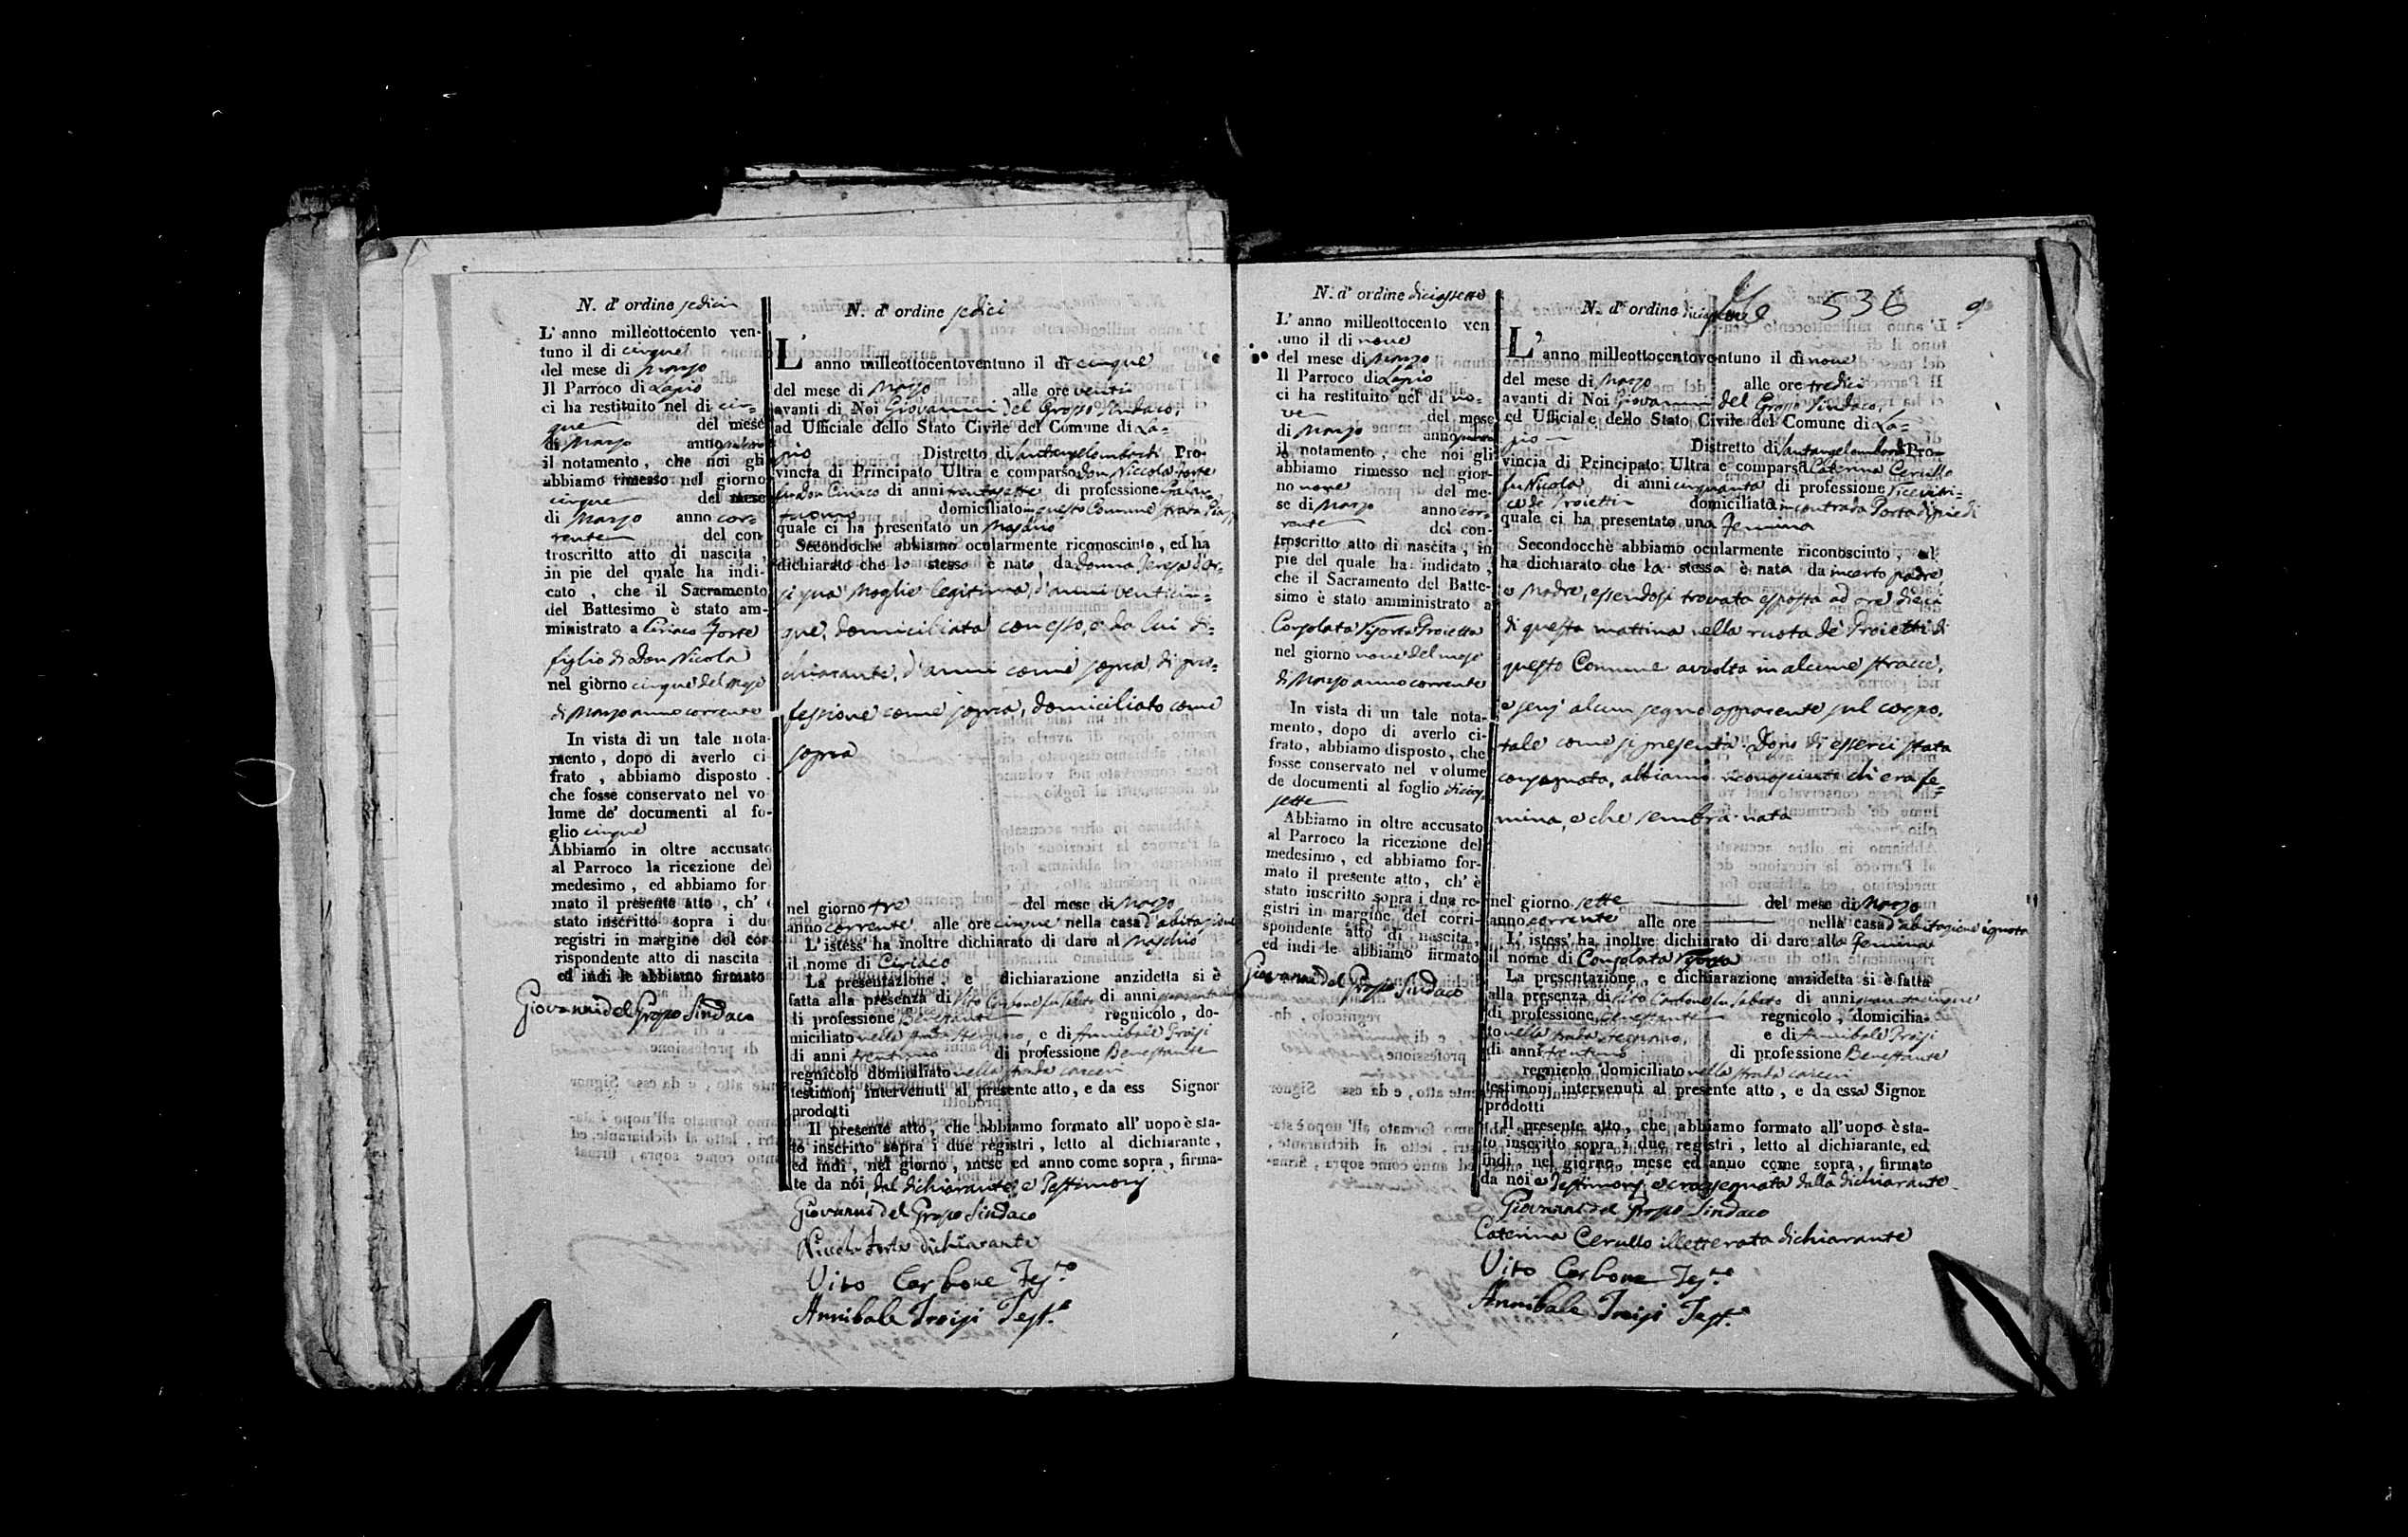 N. d' ordine sedici
L' anno milleottocento ven-
tuno il di cinque
del mese di Marzo
Il Parroco di Lapio
ci ha restituito nel di cin-
que del mese
di Marzo anno
il notamento, che noi gli
abbiamo rimesso nel giorno
cinque del mese
di Marzo anno cor-
rente del con
troscritto atto di nascita,
in pie del quale ha indi-
cato, che il Sacramento
del Battesimo è stato am-
ministrato a Ciriaco Forte
figlio di Don Nicola
nel giorno cinque del mese
di Marzo anno corrente
In vista di un tale nota-
mento, dopo di averlo ci
frato, abbiamo disposto
che fosse conservato nel vo
lume de' documenti al fo-
glio cinque
Abbiamo in oltre accusato
al Parroco la ricezione del
medesimo, ed abbiamo for
mato il presente atto, ch' è
stato inscritto sopra i du
registri in margine del cor
rispondente atto di nascita
ed indi le abbiamo firmato
Giovanni del Grosso Sindaco
N. d' ordine sedici
L' anno milleottocentoventuno il di cinque
del mese di Marzo alle ore venti
avanti di Noi Giovanni del Grosso Sindaco,
ad Uffiziale dello Stato Civile del Comune di La-
pio Distretto di Santangelombardi Pro-
vincia di Principato Ultra e comparso Don Niccola Forte
fu Don Ciriaco di anni trentasette di professione Galan-
tuomo domiciliato in questo Comune strada Piazz
quale ci ha presentato un Maschio
Secondochè abbiamo ocularmente riconosciuto, ed ha
dichiarato che lo stesso è nato da Donna Teresa d'Or-
si sua Moglie legittima, d'anni venticin-
que, domiciliata con esso, e da lui di-
chiarante, d'anni come sopra, di pro-
fessione come sopra, domiciliato come
sopra
nel giorno tre del mese di Marzo
anno corrente alle ore cinque nella casa d'abitazione
L' istess' ha inoltre dichiarato di dare al Maschio
il nome di Ciriaco
La presentazione, e dichiarazione anzidetta si è
fatta alla presenza di Vito Carbone fu Sabato di anni
di professione Benestante regnicolo, do-
miciliato nella strada, e di Annibale Troisi
di anni trentuno di professione Benestante
regnicolo domiciliato nella strada carceri
testimonj intervenuti al presente atto, e da ess Signor
prodotti
Il presente atto, che abbiamo formato all' uopo è sta-
to inscritto sopra i due registri, letto al dichiarante,
ed indi, nel giorno, mese ed anno come sopra, firma-
te da noi, dal dichiarante, e Testimonj
Giovanni del Grosso Sindaco
Niccola Forte dichiarante
Vito Carbone Tes.to
Annibale Troisi Test.e
N. d' ordine diciassette
L' anno milleottocento ven
tuno il di nove
del mese di Marzo
Il Parroco di Lapio
ci ha restituito nel di no-
ve del mese
di Marzo anno
il notamento, che noi gli
abbiamo rimesso nel gior-
no nove del me-
se di Marzo anno cor-
rente del con-
troscritto atto di nascita, in
pie del quale ha indicato,
che il Sacramento del Batte-
simo è stato amministrato a
Consolata Proietta
nel giorno nove del mese
di Marzo anno corrente
In vista di un tale nota-
mento, dopo di averlo ci-
frato, abbiamo disposto, che
fosse conservato nel volume
de documenti al foglio dicias-
sette
Abbiamo in oltre accusato
al Parroco la ricezione del
medesimo, ed abbiamo for-
mato il presente atto, ch' è
stato inscritto sopra i due re-
gistri in margine del corri-
spondente atto di nascita,
ed indi le abbiamo firmato
Giovanni del Grosso Sindaco
N. d' ordine diciassette 536 9
L' anno milleottocentoventuno il di nove
del mese di Marzo alle ore tredici
avanti di Noi Giovanni del Grosso Sindaco,
ed Uffiziale dello Stato Civile del Comune di La-
pio Distretto di Santangelombardi Pro-
vincia di Principato Ultra e comparsa Caterina Cerullo
fu Nicola di anni cinquanta di professione ricevitri-
ce de' Proietti domiciliata in contrada Porta di piedi
quale ci ha presentato una Femina
Secondocchè abbiamo ocularmente riconosciuto, ed
ha dichiarato che la stessa è nata da incerto padre,
e Madre, essendosi trovata esposta ad ore dieci
di questa mattina nella ruota de' Proietti di
questo Comune avvolta in alcune stracce,
e senz' alcun segno apparente sul corpo,
tale come si presenta. Dopo di esserci stata
consegnata, abbiamo riconosciuto ch' era fe-
mina, e che sembra nata
nel giorno sette del mese di Marzo
anno corrente alle ore nella casa d'abitazione ignota
L' istess' ha inoltre dichiarato di dare alla Femina
il nome di Consolata
La presentazione, e dichiarazione anzidetta si è fatta
alla presenza di Vito Carbone fu Sabato di anni
di professione Benestante regnicolo, domicilia-
to nella strada e di Annibale Troisi
di anni trentuno di professione Benestante
regnicolo domiciliato nella strada carceri
testimonj intervenuti al presente atto, e da essa Signor
prodotti
Il presente atto, che abbiamo formato all' uopo è sta-
to inscritto sopra i due registri, letto al dichiarante, ed
indi nel giorno, mese ed anno come sopra, firmato
da noi e Testimonj, e crossegnata dalla dichiarante
Giovanni del Grosso Sindaco
Caterina Cerullo illetterata dichiarante
Vito Carbone Tes.to
Annibale Troisi Test.e